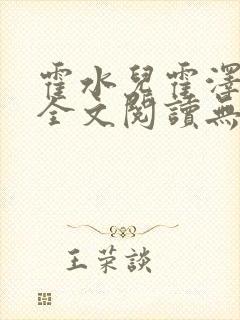 霍水兒霍澤
全文閱讀無
王荣談